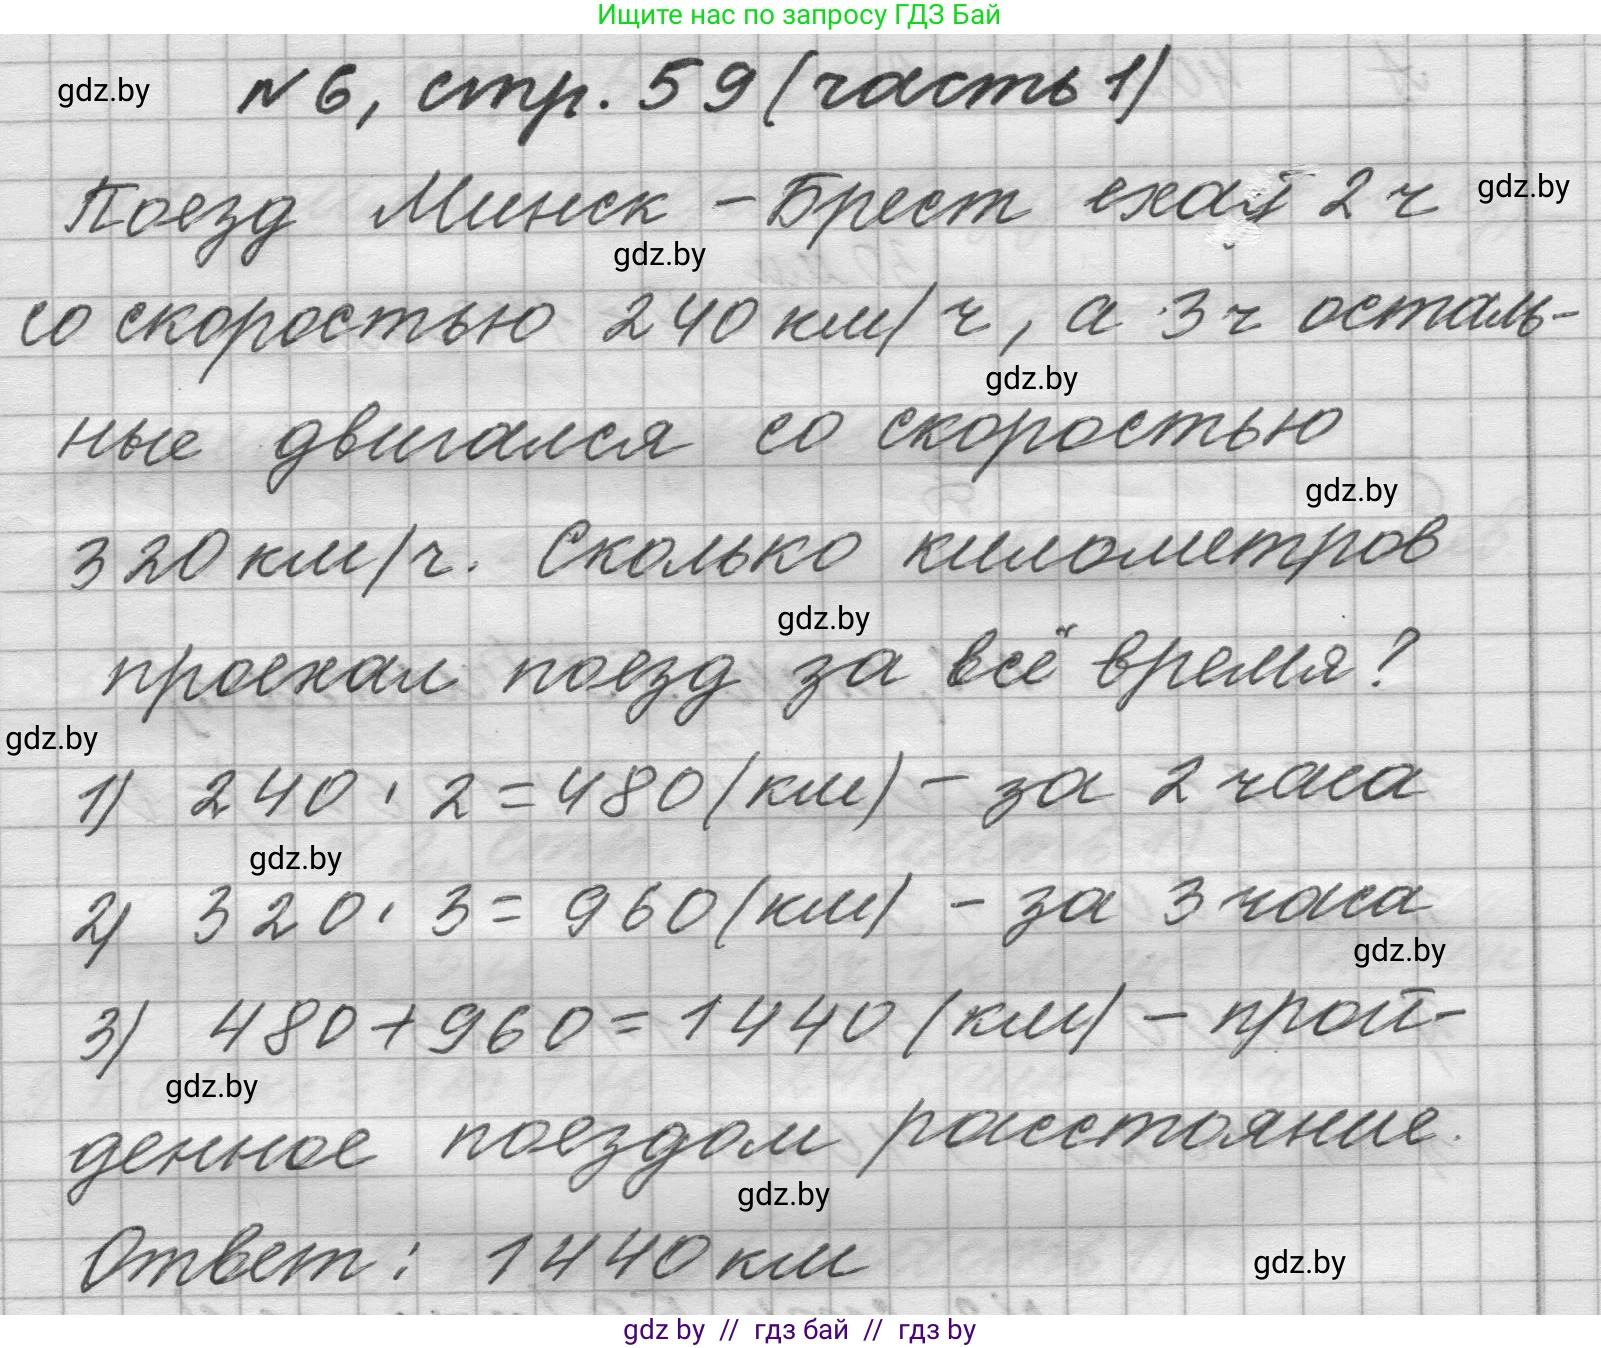 Ищите нас по запросу ГДЗ Бай
gdz.by
№ 6, стр. 59 (часть 1)
Поезд Минск - Брест ехал 2 ч
gdz.by
gdz.by
со скоростью 240 км/ч, а 3 ч осталь-
gdz.by
ные двигался со скоростью
gdz.by
320 км/ч. Сколько километров
gdz.by
проехал поезд за всё время?
gdz.by
1) 240 · 2 = 480 (км) - за 2 часа
gdz.by
2) 320 · 3 = 960 (км) - за 3 часа
gdz.by
3) 480 + 960 = 1440 (км) - прой-
gdz.by
денное поездом расстояние.
gdz.by
Ответ: 1440 км
gdz.by
gdz by // гдз бай // gdz by